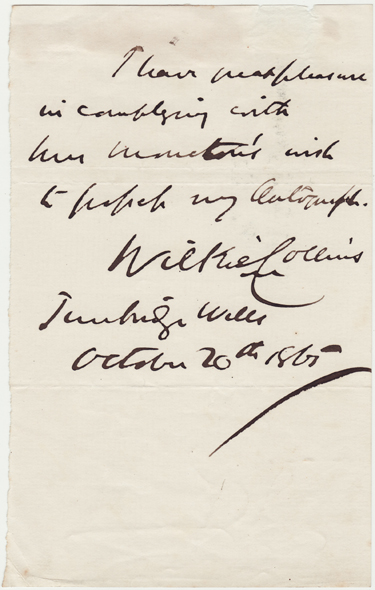 I have great pleasure
in complying with
Mrs Monckton's wish
to possess my Autograph.
Wilkie Collins
Tunbridge Wells
October 20th 1865